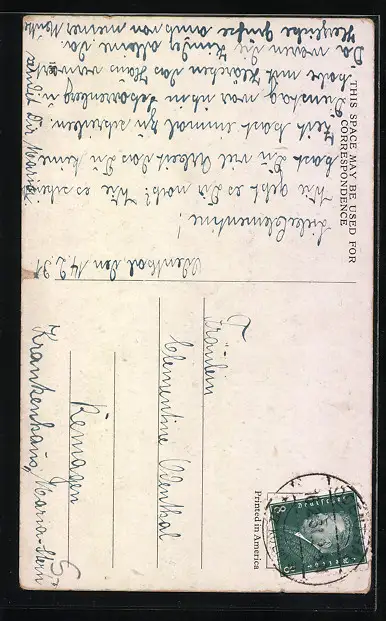 THIS SPACE MAY BE USED FOR
CORRESPONDENCE
Odenthal den 14.2.31
Liebe Clementine!
Wie geht es Dir noch? Wie es scheint
hast Du viel Arbeit das Du keine
Zeit hast einmal zu schreiben.
Dienstag war ich in
habe mit das Haus
Da waren die Kinder alleine da.
Herzliche Grüße auch von meiner Mutter
Dir Maria
Printed in America
Deutsches Reich
8
8
Fräulein
Clementine Odenthal
Remagen
Krankenhaus, Maria-Stern